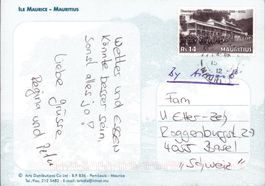 ILE MAURICE - MAURITIUS
Wetter und Essen
könnte besser sein,
sonst alles jo!
Liebe Grüsse
Regina und
Rs.14
MAURITIUS
by
Fam
U Etter-Zeh
Roggenburgstr 29
4055 Basel
"Schweiz"
© Arts Distributors Co Ltd - B.P. 836 - Port-Louis - Maurice
Tel. Fax. 212 0482 - E-mail: